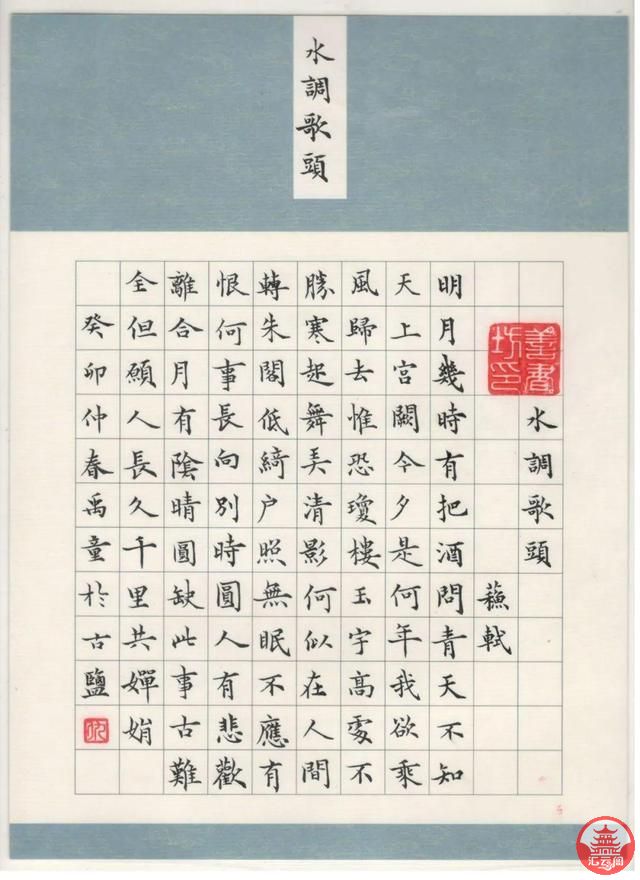 水調歌頭
水調歌頭
善書坊印
蘓軾
明月幾時有把酒問青天不知
天上宮闕今夕是何年我欲乘
風歸去惟恐瓊樓玉宇高處不
勝寒起舞弄清影何似在人間
轉朱閣低綺户照無眠不應有
恨何事長向別時圓人有悲歡
離合月有陰晴圓缺此事古難
全但願人長久千里共嬋娟
癸卯仲春禹童於古鹽
汇云阁